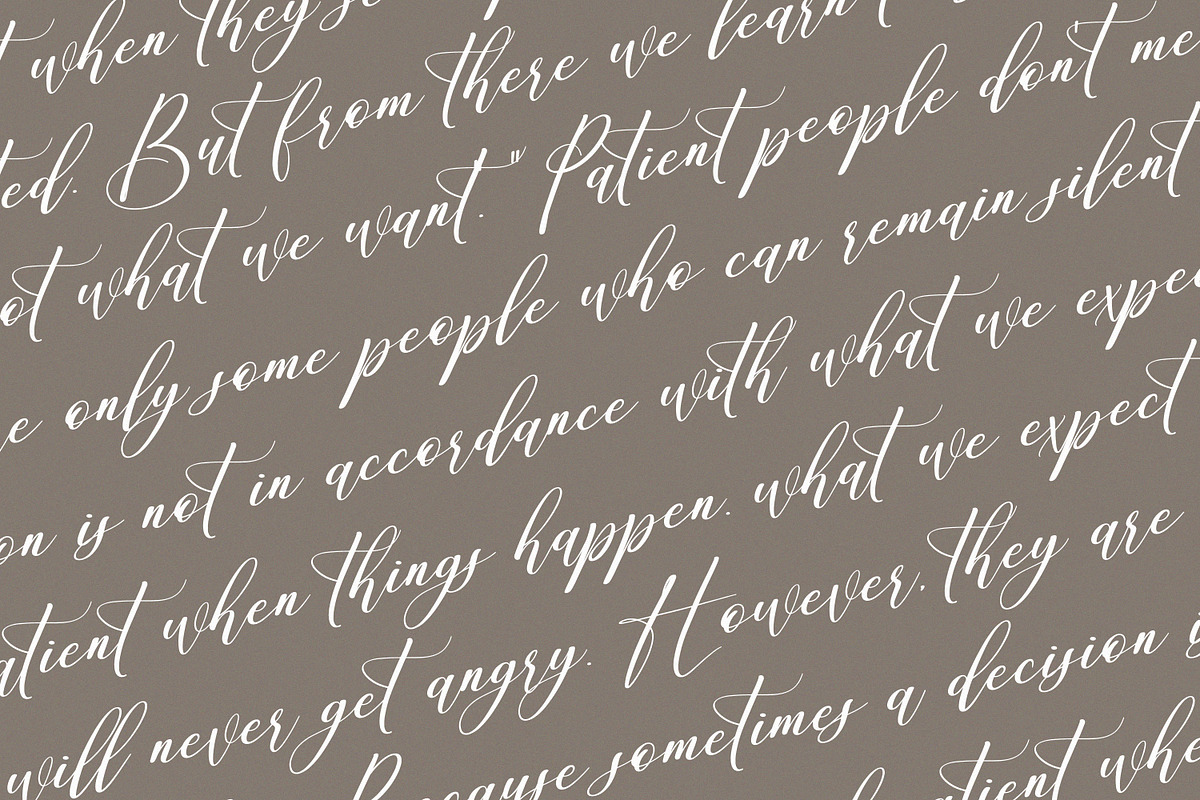 when they
ted. But from there we learn
ot what we want." Patient people don't me
e only some people who can remain silent
on is not in accordance with what we expec
atient when things happen. what we expect
will never get angry. However, they are
Because sometimes a decision is
patient whe